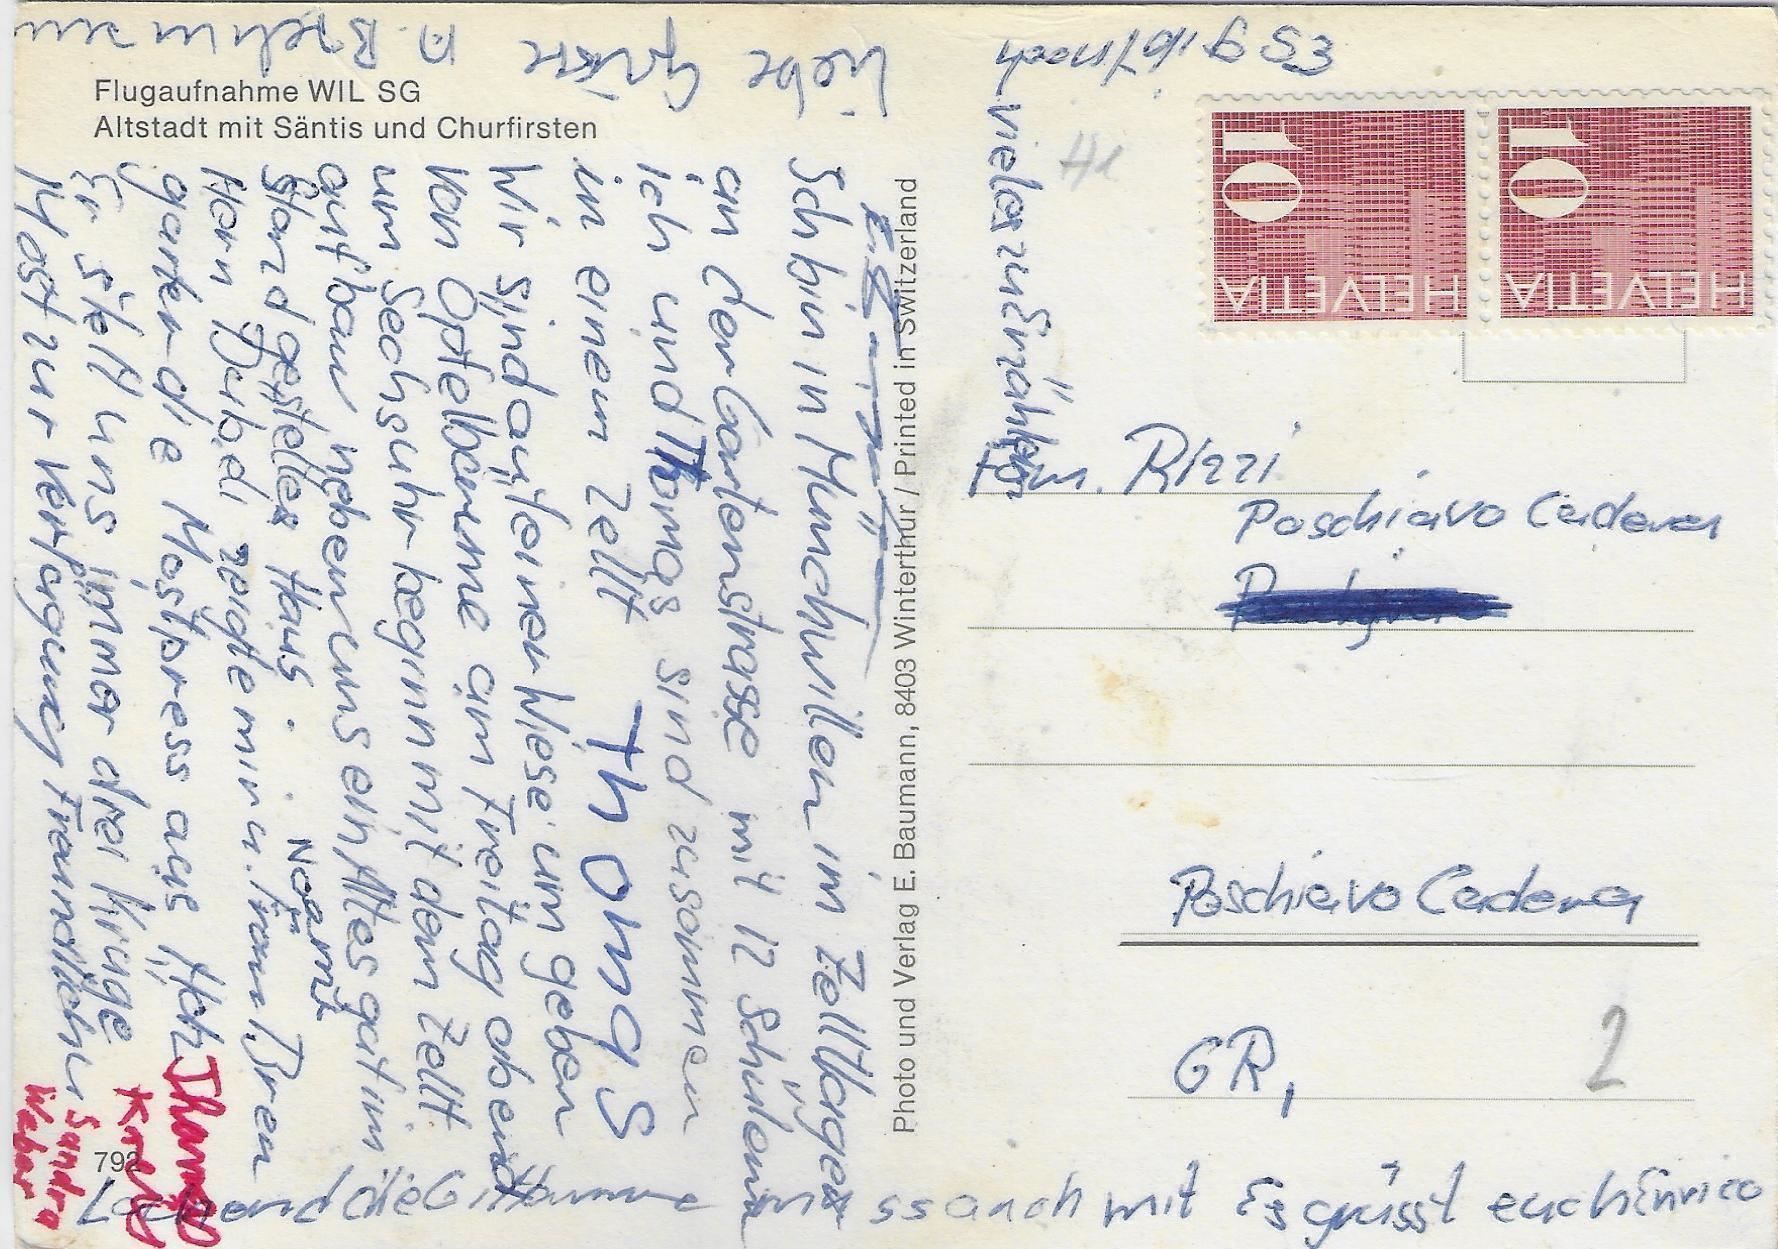 Flugaufnahme WIL SG
Altstadt mit Säntis und Churfirsten
792
Photo und Verlag E. Baumann, 8403 Winterthur / Printed in Switzerland
Sch bin in Münchwillen im Zelltlager
an der Gartenstrasse mit 12 Schülern
ich und Thomas sind zusammen
in einem Zellt Thomas
Wir sind auf einer Wiese um geben
von Opfelbäume am Freitag abend
um Sechsuhr beginn mit dem Zellt
aufbau neben uns ein Altes gatim
Stand gestelltes Haus. Naomi
Horn Barbed zeigte mir u. Frau Bren
garten die Mostpress aus Holz
Er stellt uns immer drei Krüge
Most zur Verfügung freundlicher
Thomas
Karin
Sandra
Weber
ss auch mit Es grüsst euch Enrico
Liebe Grüsse
Es gibt noch
vieles zu Erzählen
HELVETIA 10
HELVETIA 10
H1
Fam. Rizzi
Poschiavo Cadera
Poschiavo Cadera
GR,
2